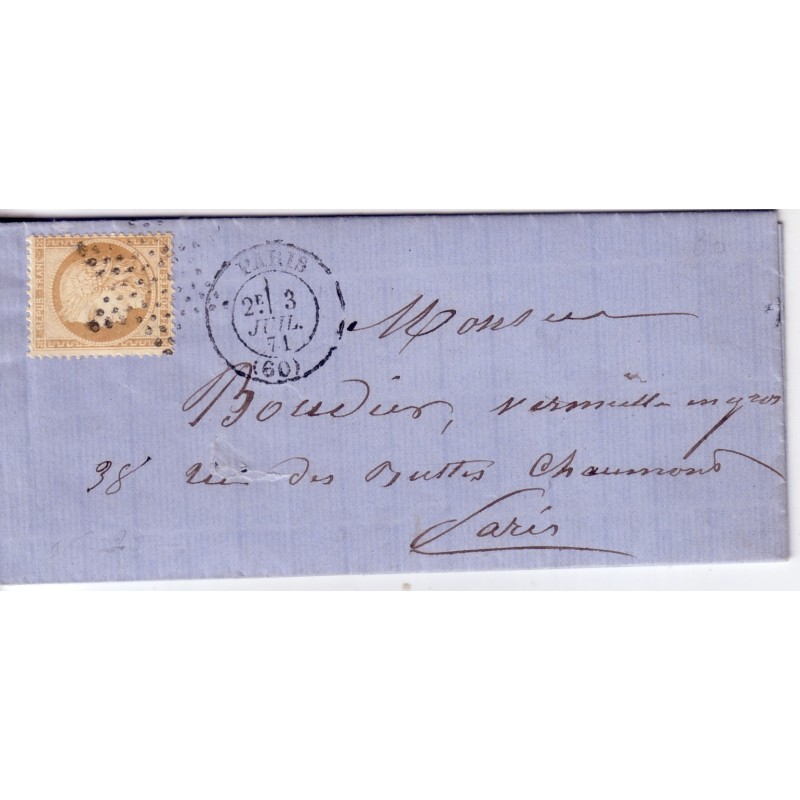 REPUB. FRANC.
PARIS
2E 3
JUIL.
71
(60)
Monsieur
Boudier, Vermicelle en gros
38 rue des Buttes Chaumont
Paris